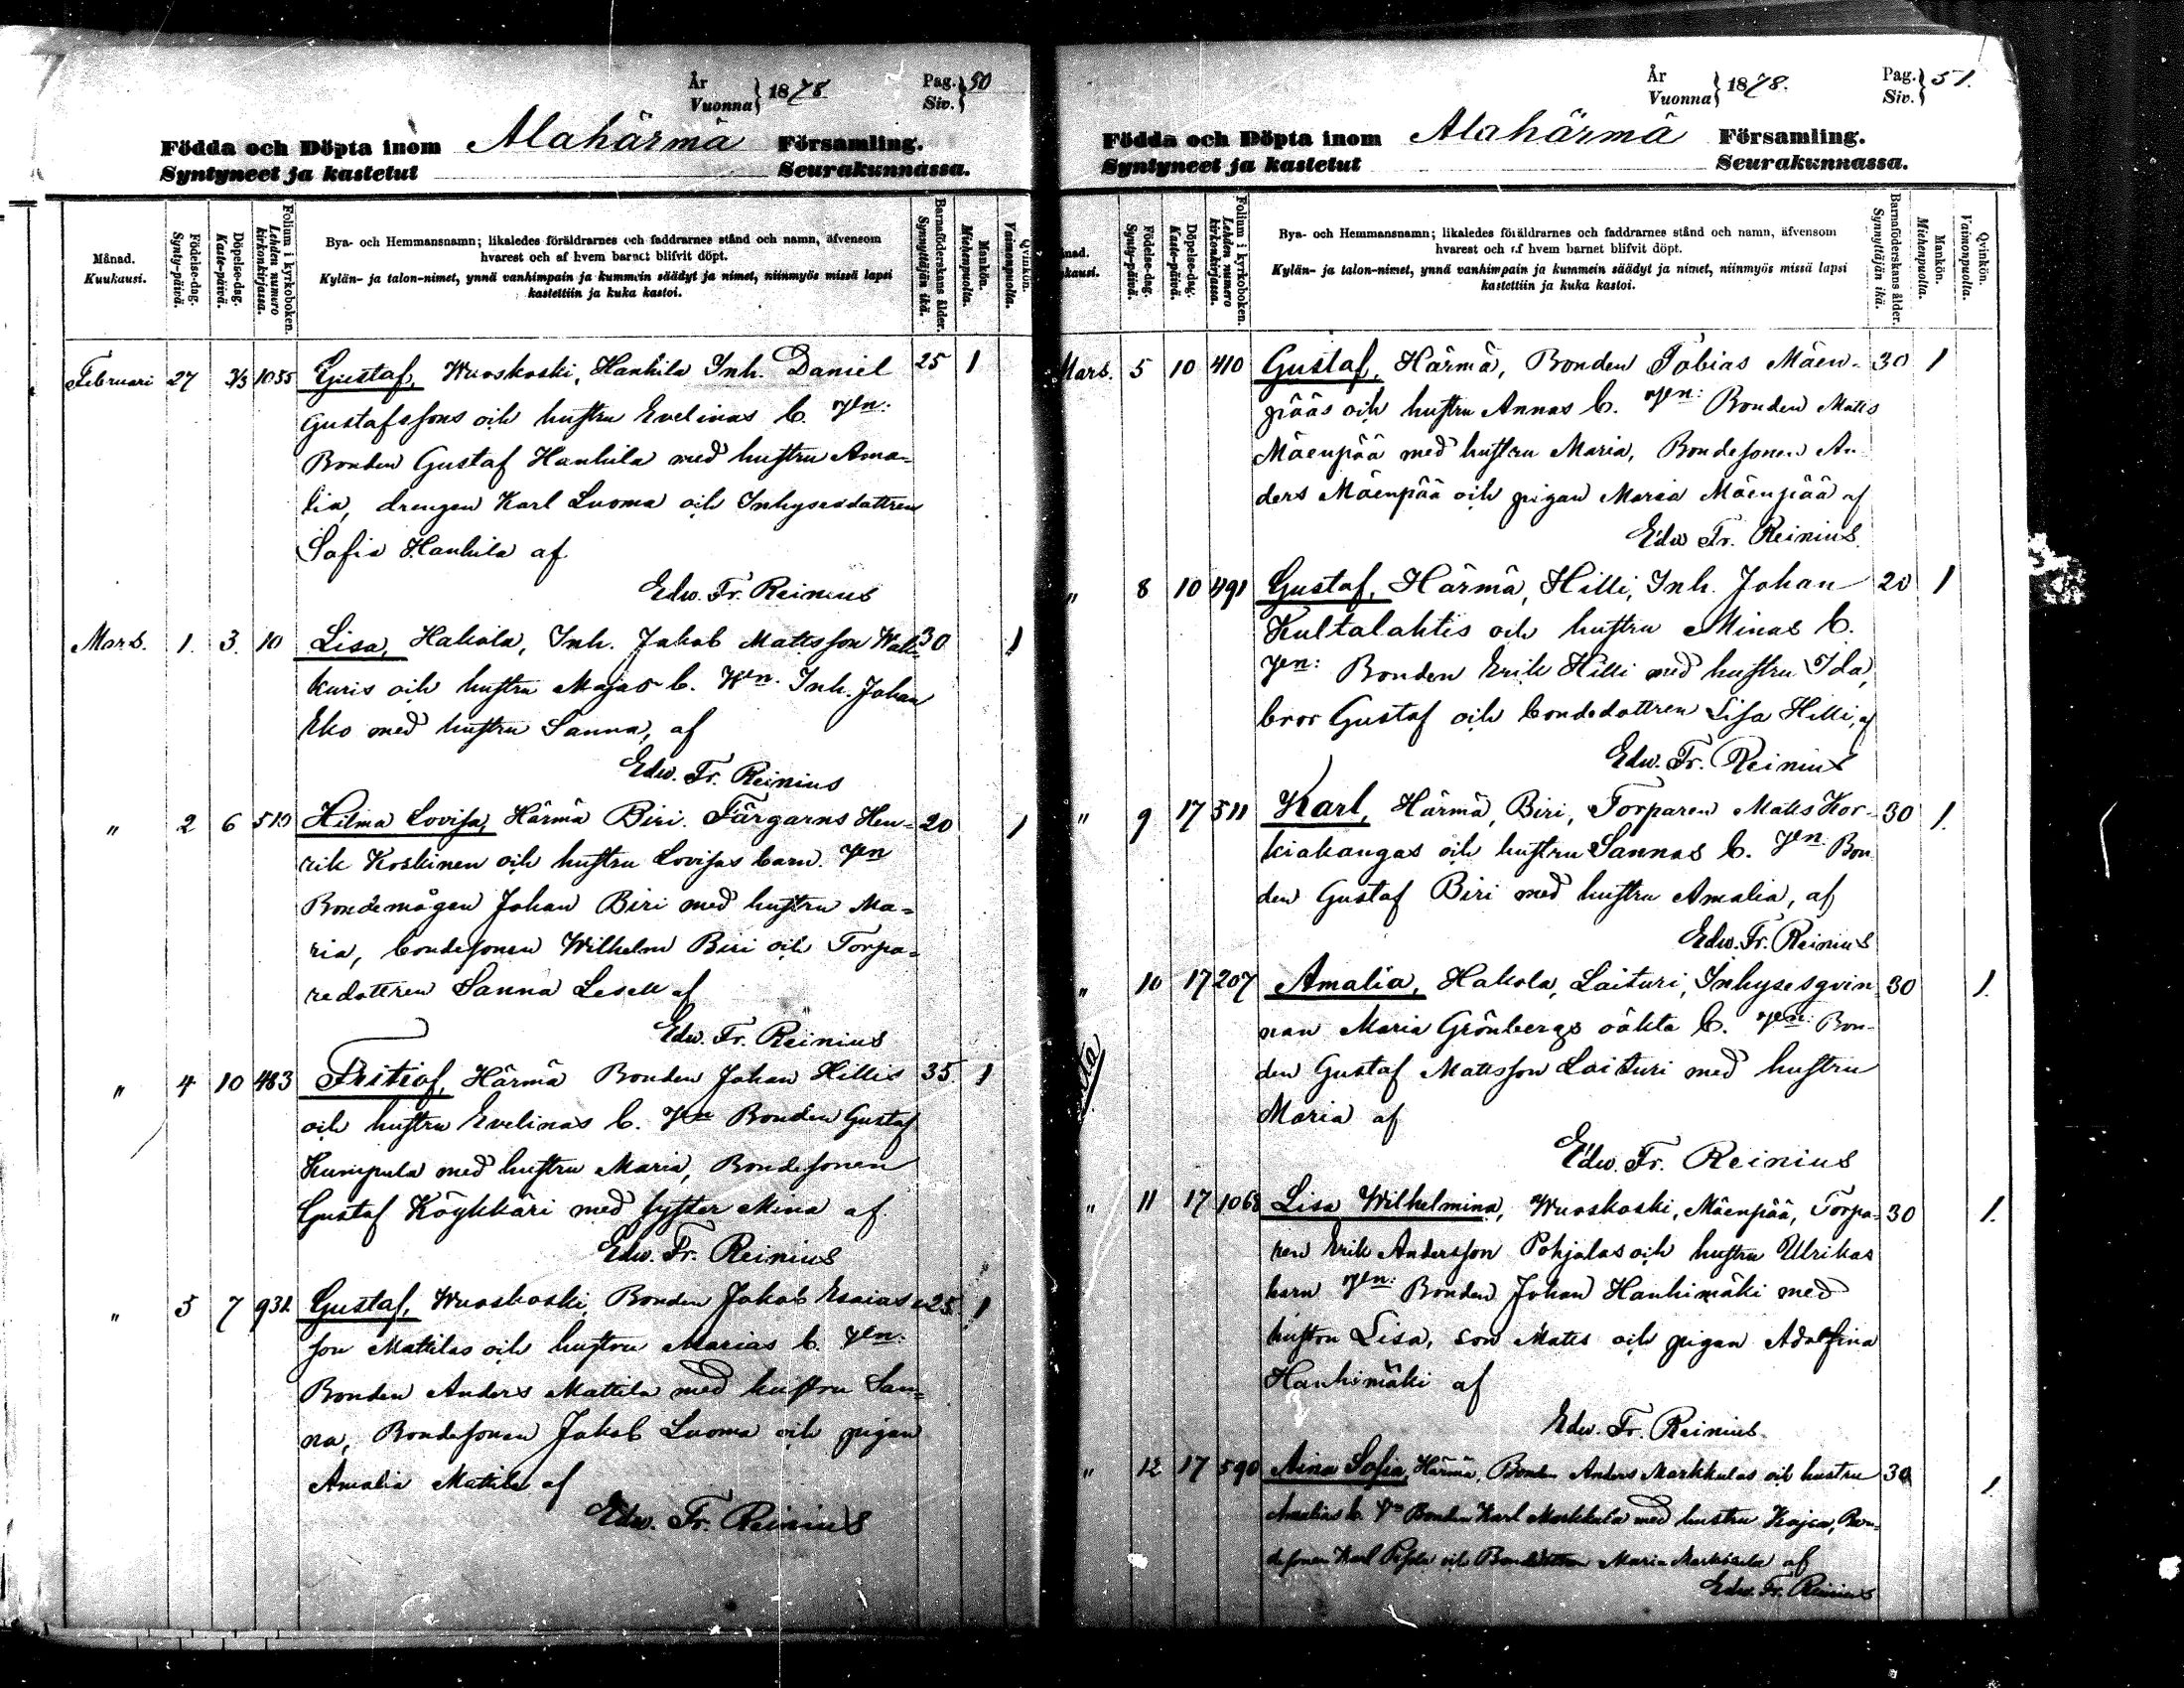 År
Vuonna } 1878
Pag.
Siv. } 50
Födda och Döpta inom Alahärmä Församling.
Syntyneet ja kastetut Seurakunnassa.
Månad.
Kuukausi.
Födelse-dag.
Synty-päivä.
Döpelse-dag.
Kaste-päivä.
Folium i kyrkoboken.
Lehden numero
kirkonkirjassa.
Bya- och Hemmansnamn; likaledes föräldrarnes och faddrarnes stånd och namn, äfvensom
hvarest och af hvem barnet blifvit döpt.
Kylän- ja talon-nimet, ynnä vanhimpain ja kummein säädyt ja nimet, niinmyös missä lapsi
kastettiin ja kuka kastoi.
Barnaföderskans ålder.
Synnyttäjän ikä.
Mankön.
Miehenpuolta.
Qvinkön.
Vaimonpuolta.
Februari 27 3/3 1055 Gustaf, Wuoskoski, Hanhila Inh. Daniel 25 1
Gustafssons och hustru Evelinas b. Ven:
Bonden Gustaf Hanhila med hustru Ama-
lia, drengen Karl Luoma och Inhysesdattren
Sofia Hanhila af
Edw. Fr. Reinius
Mars. 1. 3. 10 Lisa, Hakola, Inh. Jakob Mattsson 30 1
kuris och hustru Majas b. Ven. Inh. Johan
Eko med hustru Sanna, af
Edw. Fr. Reinius
" 2 6 Hilma Lovisa, Härmä Biri. Färgarns Hen- 20 1
rik Koskinen och hustru Lovisas barn. Ven
Bondemågen Johan Biri med hustru Ma-
ria, bondesonen Wilhelm Biri och Torpa-
redottren Sanna af
Edw. Fr. Reinius
" 4 10 483 Fritiof, Härmä Bonden Johan Hillis 35. 1
och hustru Evelinas b. Ven Bonden Gustaf
Kumpula med hustru Maria, Bondesonen
Gustaf Köykkäri med syster Mina af
Edw. Fr. Reinius
" 5 7 Gustaf, Wuoskoski, Bonden Jakob Esaias- 25 1
son Mattilas och hustru Marias b. Ven.
Bonden Anders Mattila med hustru San-
na, Bondesonen Jakob Luoma och pigan
Amalia Mattila af
Edw. Fr. Reinius
År
Vuonna } 1878.
Pag.
Siv. } 51.
Födda och Döpta inom Alahärmä Församling.
Syntyneet ja kastetut Seurakunnassa.
nad.
kausi.
Födelse-dag.
Synty-päivä.
Döpelse-dag.
Kaste-päivä.
Folium i kyrkoboken.
Lehden numero
kirkonkirjassa.
Bya- och Hemmansnamn; likaledes föräldrarnes och faddrarnes stånd och namn, äfvensom
hvarest och af hvem barnet blifvit döpt.
Kylän- ja talon-nimet, ynnä vanhimpain ja kummein säädyt ja nimet, niinmyös missä lapsi
kastettiin ja kuka kastoi.
Barnaföderskans ålder.
Synnyttäjän ikä.
Mankön.
Miehenpuolta.
Qvinkön.
Vaimonpuolta.
Mars. 5 10 410 Gustaf, Härmä, Bonden Tobias Mäen- 30 1
pääs och hustru Annas b. Ven: Bonden Matts
Mäenpää med hustru Maria, Bondesonen An-
ders Mäenpää och pigan Maria Mäenpää af
Edw Fr. Reinius.
" 8 10 491 Gustaf, Härmä, Hilli, Inh. Johan 20 1
Kultalahtis och hustru Minas b.
Ven: Bonden Erik Hilli med hustru Ida,
bror Gustaf och bondedottren Lisa Hilli, af
Edw. Fr. Reinius
" 9 17 511 Karl, Härmä, Biri, Torparen Matts Kor- 30 1.
kiakangas och hustru Sannas b. Ven. Bon
den Gustaf Biri med hustru Amalia, af
Edw. Fr. Reinius
" 10 17 207 Amalia, Hakola, Laituri, Inhysesqvin 30 1.
nan Maria Grönbergs oäkta b. Ven: Bon-
den Gustaf Mattsson Laituri med hustru
Maria af
Edw. Fr. Reinius
" 11 17 1068 Lisa Wilhelmina, Wuoskoski, Mäenpää, Torpa- 30 1.
ren Erik Andersson Pohjalas och hustru Ulrikas
barn Ven: Bonden Johan Hanhimäki med
hustru Lisa, son Matts och pigan Adolfina
Hanhimäki af
Edw. Fr. Reinius
" 12 17 590 Aina Sofia, Härmä, Bonden Anders Markkulas och hustru 30 1
Amalias b. Vn Bonden Karl Markkula med hustru Kajsa, Bon-
desonen Karl och Bondedottren Maria Markkula af
Edw. Fr. Reinius